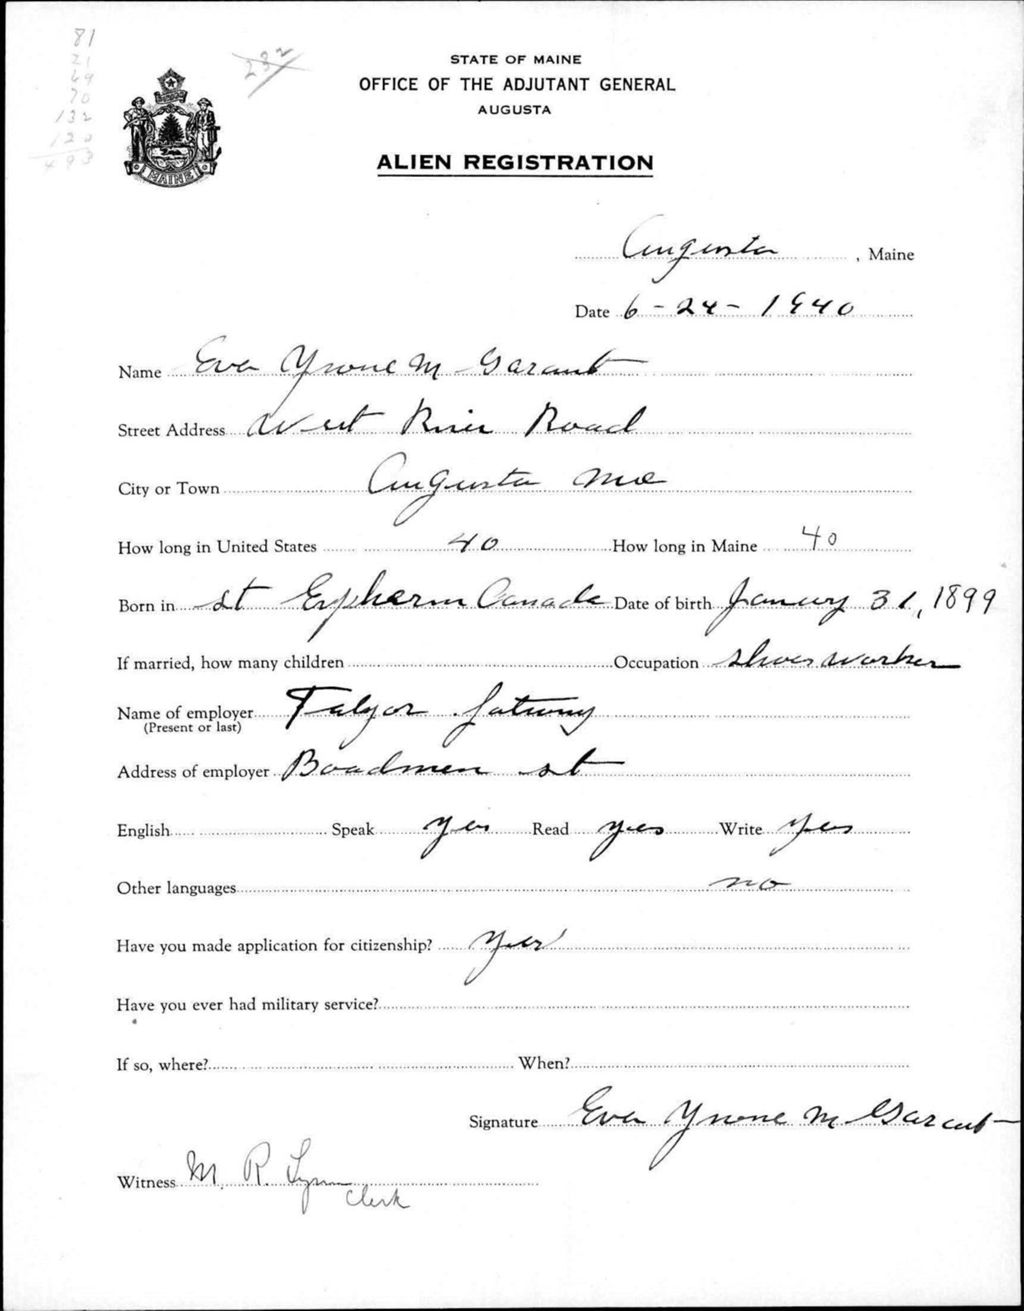 81
21
69
70
132
120
493
232
STATE OF MAINE
OFFICE OF THE ADJUTANT GENERAL
AUGUSTA
MAINE
ALIEN REGISTRATION
Augusta, Maine
Date 6-24-1940
Name Eva Yvone M Garant
Street Address West River Road
City or Town Augusta Me
How long in United States 40 How long in Maine 40
Born in St Erpherm Canada Date of birth January 31, 1899
If married, how many children Occupation Shoes worker
Name of employer
(Present or last)
Address of employer Boadmen st
English Speak yes Read yes Write yes
Other languages no
Have you made application for citizenship? Yes
Have you ever had military service?
If so, where? When?
Signature Eva Yvone M Garant
Witness M. R. Lynn
Clerk